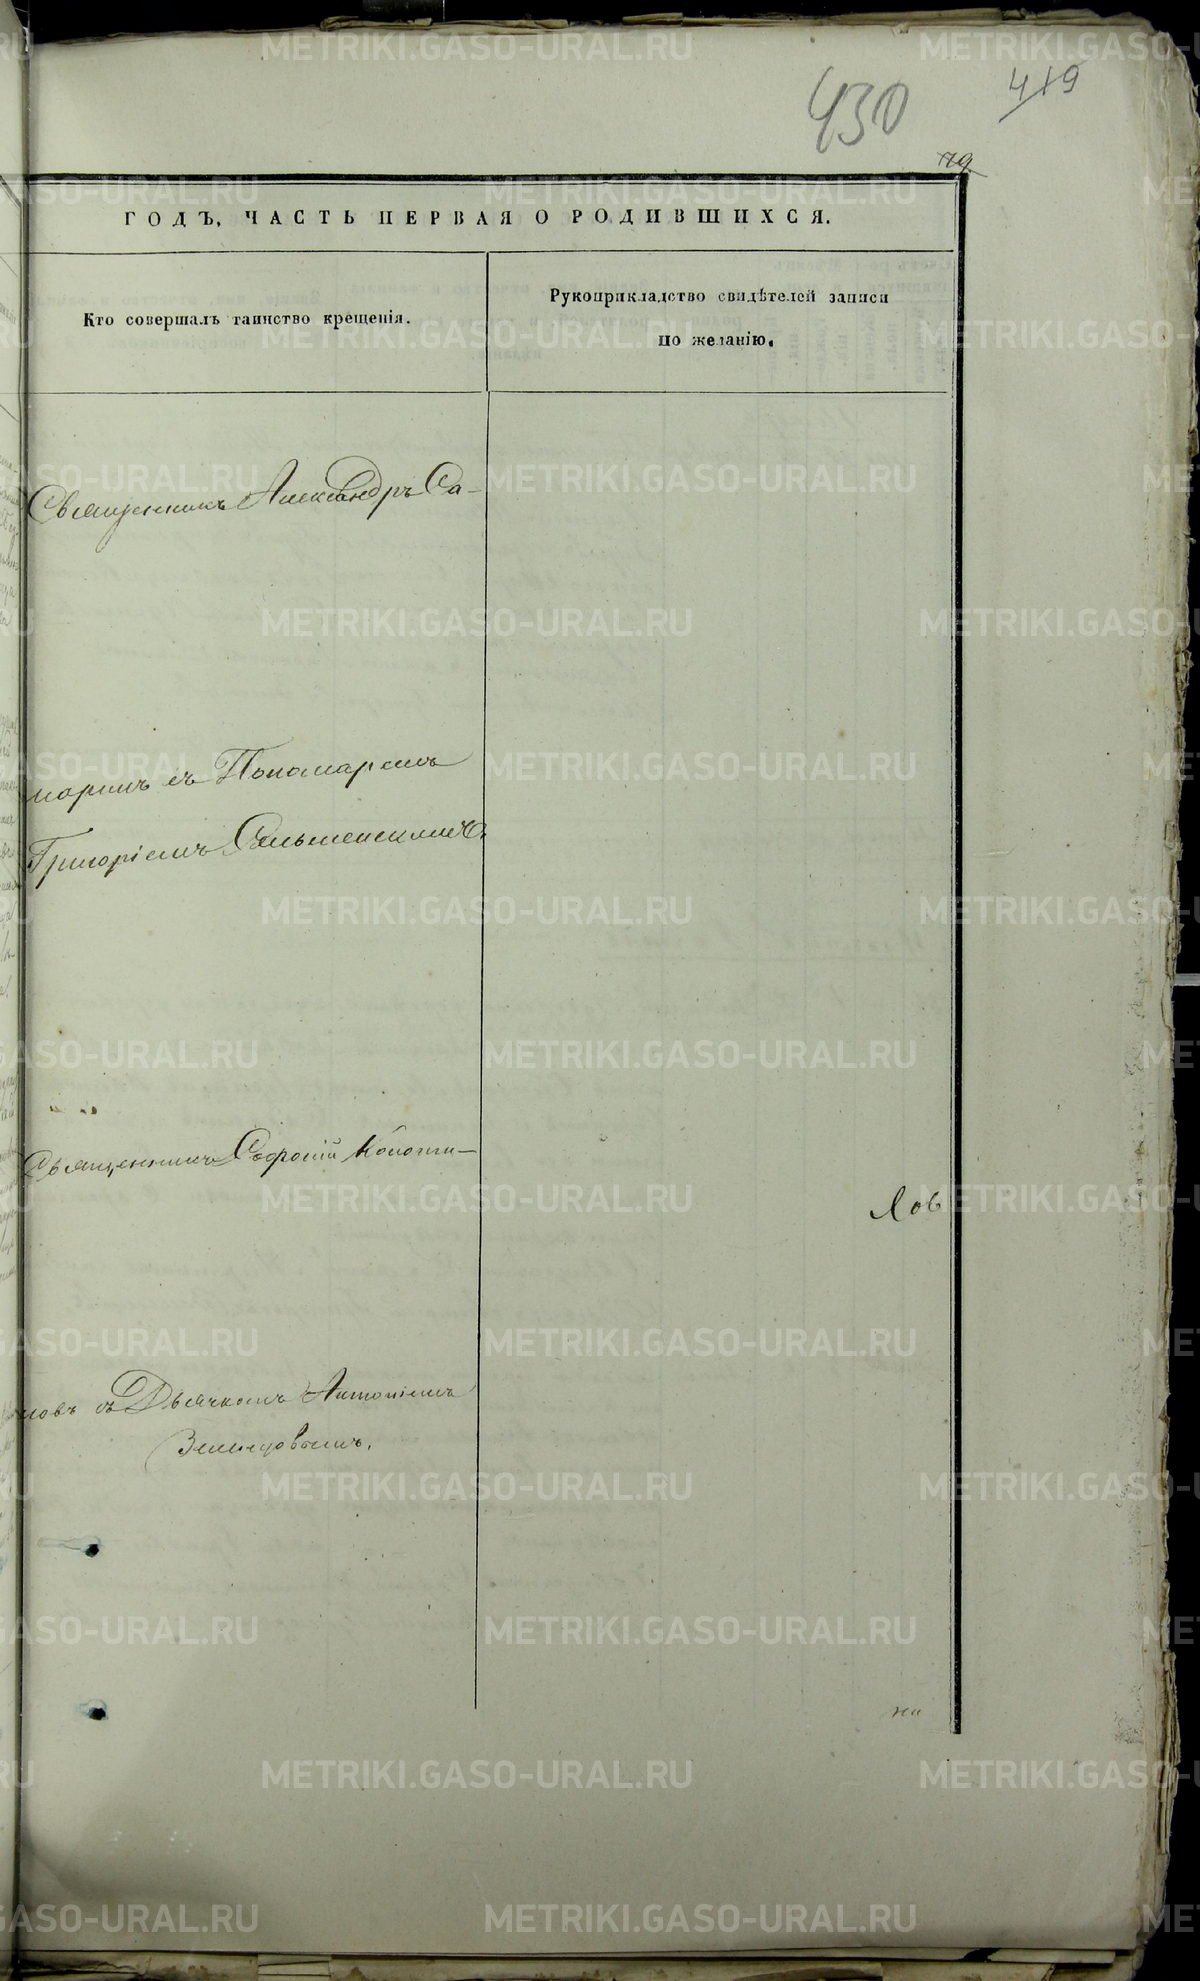 430
419
119.
ГОДЪ, ЧАСТЬ ПЕРВАЯ О РОДИВШИХСЯ.
Кто совершалъ таинство крещенія.
Рукоприкладство свидѣтелей записи
по желанію.
Священникъ Александръ Са-
маринъ съ Пономаремъ
Григоріемъ Сельменскимъ.
Священникъ Софроній Копоти-
Лов
ловъ съ Дьячкомъ Антоніемъ
METRIKI.GASO-URAL.RU